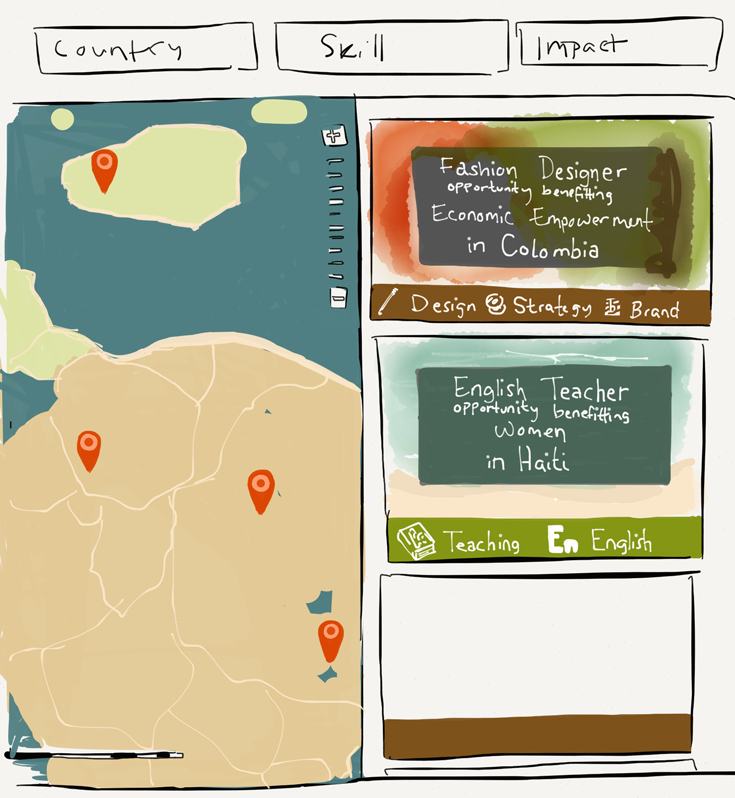 Country
Skill
Impact
Fashion Designer
opportunity benefitting
Economic Empowerment
in Colombia
Design Strategy Brand
English Teacher
opportunity benefitting
Women
in Haiti
Teaching En English